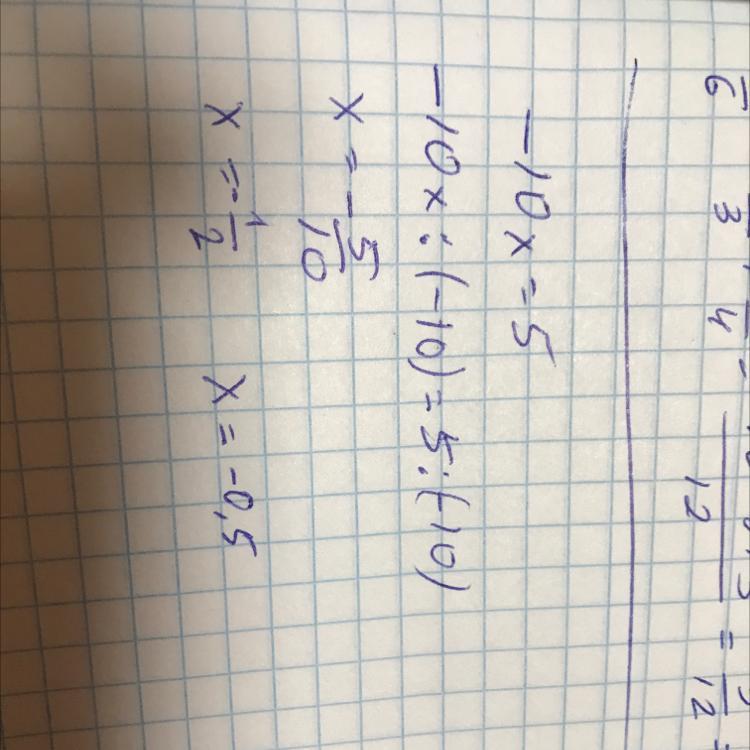 6 3 4 12 = 12
-10x = 5
-10x : (-10) = 5 : (-10)
x = -5/10
x = -1/2 x = -0,5